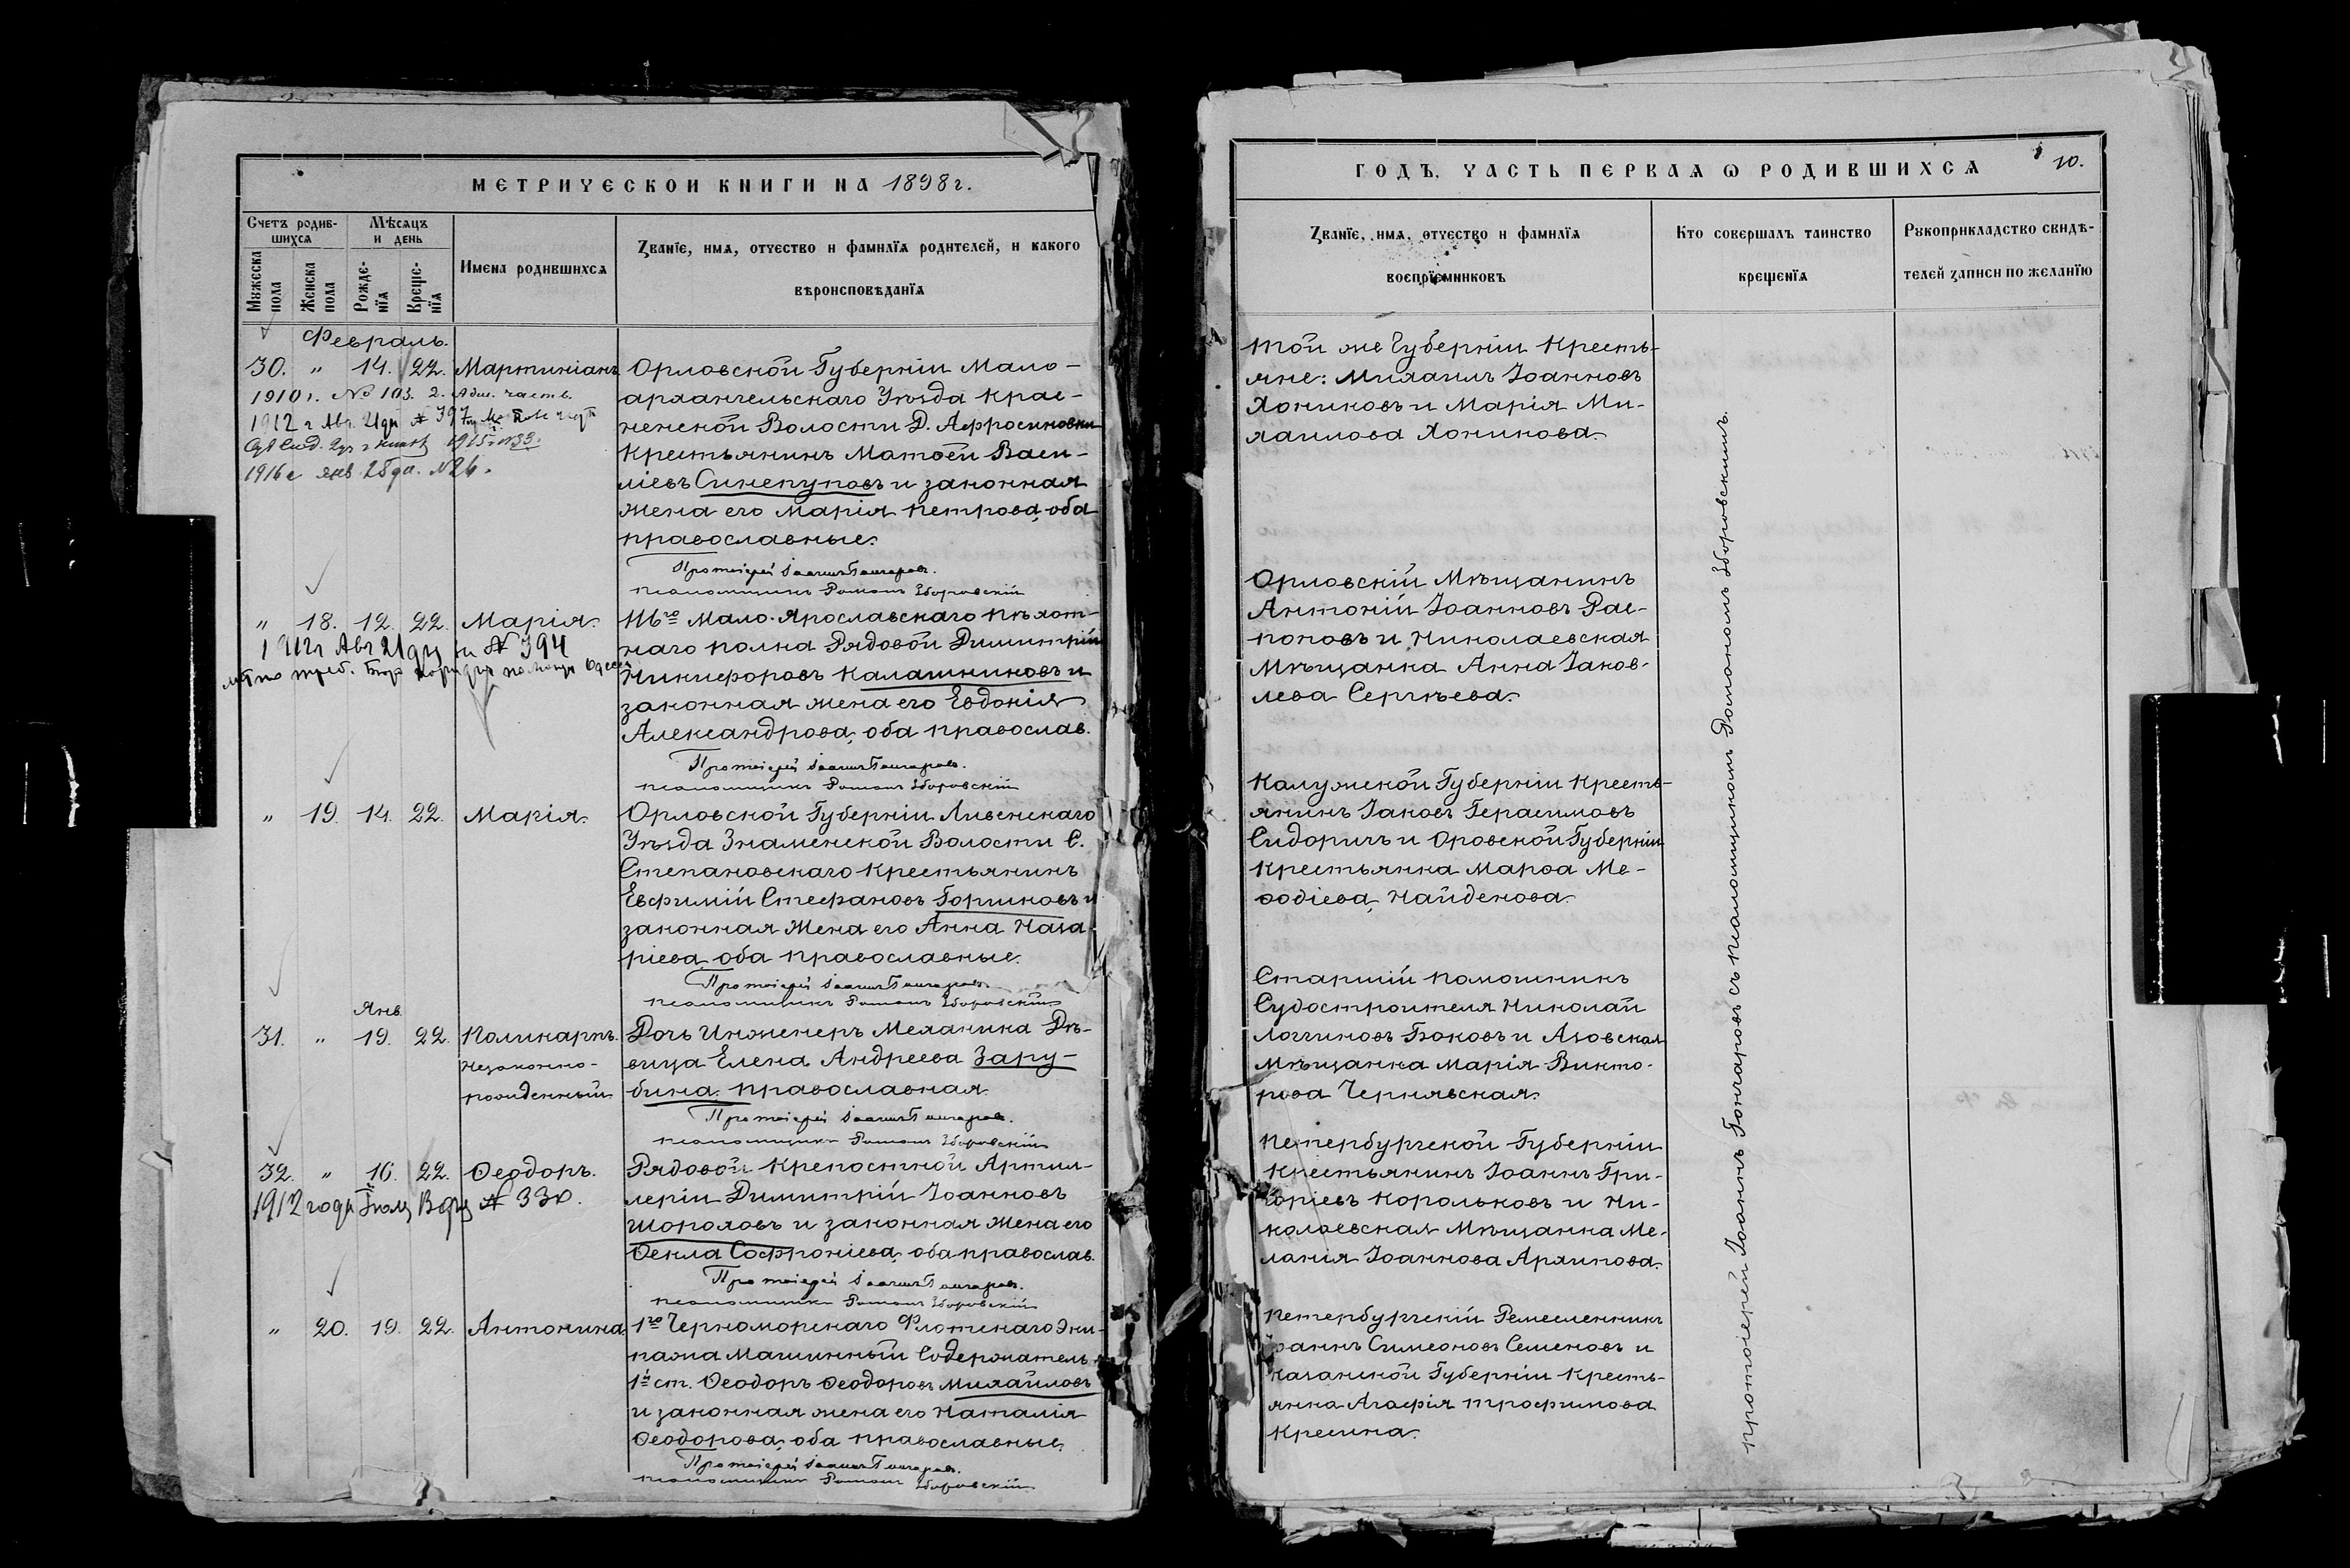 МЕТРИЧЕСКОЙ КНИГИ НА 1898 г.
Счетъ родив-
шихся
Мѣсяцъ
и день
Имена родившихся
Званїе, имя, отчество и фамилїя родителей, и какого
вѣроисповѣданїя
Мужеска
пола
Женска
пола
Рожде-
нїя
Креще-
нїя
Февраль.
30. " 14. 22. Мартиніанъ
Орловской Губерніи Мало-
архангельскаго Уѣзда Крас-
ненской Волости Д. Афросиновки
Крестьянинъ Матѳей Васи-
ліевъ Синепуповъ и законная
жена его Марія Петрова, оба
православные.
1910 г. № 103. 2.
1912 г Авг. 21 дня № 397
1915 г. № 33.
1916 г янв 28 дн. № 26.
Протоіерей Іоаннъ Гончаровъ.
псаломщикъ Романъ Зборовскій
" 18. 12. 22. Марія.
116го Мало-Ярославскаго Пѣхот-
наго полка Рядовой Димитрій
Никифоровъ Калашниковъ и
законная жена его Евдокія
Александрова, оба православ.
1912 г Авг 21 дня № 394
Протоіерей Іоаннъ Гончаровъ.
псаломщикъ Романъ Зборовскій
" 19. 14. 22. Марія.
Орловской Губерніи Ливенскаго
Уѣзда Знаменской Волости С.
Степановскаго Крестьянинъ
Евфимій Стефановъ Горшковъ и
законная жена его Анна Наза-
ріева, оба православные.
Протоіерей Іоаннъ Гончаровъ.
псаломщикъ Романъ Зборовскій
Янв
31. " 19. 22. Поликарпъ.
незаконно-
рожденный
Дочь Инженеръ Механика Дѣ-
вица Елена Андреева Зару-
бина православная.
Протоіерей Іоаннъ Гончаровъ.
псаломщикъ Романъ Зборовскій
32. " 16. 22. Ѳеодоръ.
Рядовой Крепостной Артил-
леріи Димитрій Іоанновъ
Шороховъ и законная жена его
Ѳекла Софроніева, оба православ.
1912 года № 330.
Протоіерей Іоаннъ Гончаровъ.
псаломщикъ Романъ Зборовскій
" 20. 19. 22. Антонина
1го Черноморскаго Флотскаго Эки-
пажа Машинный Содержатель
1й ст. Ѳеодоръ Ѳеодоровъ Михайловъ
и законная жена его Наталія
Ѳеодорова, оба православные.
Протоіерей Іоаннъ Гончаровъ.
псаломщикъ Романъ Зборовскій
ГОДЪ, ЧАСТЬ ПЕРВАЯ Ѡ РОДИВШИХСЯ 10.
Званїе, имя, отчество и фамилїя
воспрїемниковъ
Кто совершалъ таинство
крещенїя
Рукоприкладство свидѣ-
телей записи по желанїю
той же Губерніи Кресть-
яне: Михаилъ Іоанновъ
Хониковъ и Марія Ми-
хаилова Хоникова.
Орловскій Мѣщанинъ
Антоній Іоанновъ Рас-
поповъ и Николаевская
Мѣщанка Анна Іаков-
лева Сергѣева.
Калужской Губерніи Кресть-
янинъ Іаковъ Герасимовъ
Сидоричъ и Оровской Губерніи
Крестьянка Марѳа Ме-
ѳодіева Найденова.
Старшій помошникъ
Судостроителя Николай
Логгиновъ Боковъ и Азовская
Мѣщанка Марія Викто-
рова Чернявская.
Петербургской Губерніи
Крестьянинъ Іоаннъ Гри-
горіевъ Корольковъ и Ни-
колаевская Мѣщанка Ме-
ланія Іоаннова Архипова.
Петербургскій Ремесленникъ
Іоаннъ Симеоновъ Семеновъ и
Казанской Губерніи Кресть-
янка Агафія Трофимова
Кресина.
Протоіерей Іоаннъ Гончаровъ съ псаломщикомъ Романомъ Зборовскимъ.